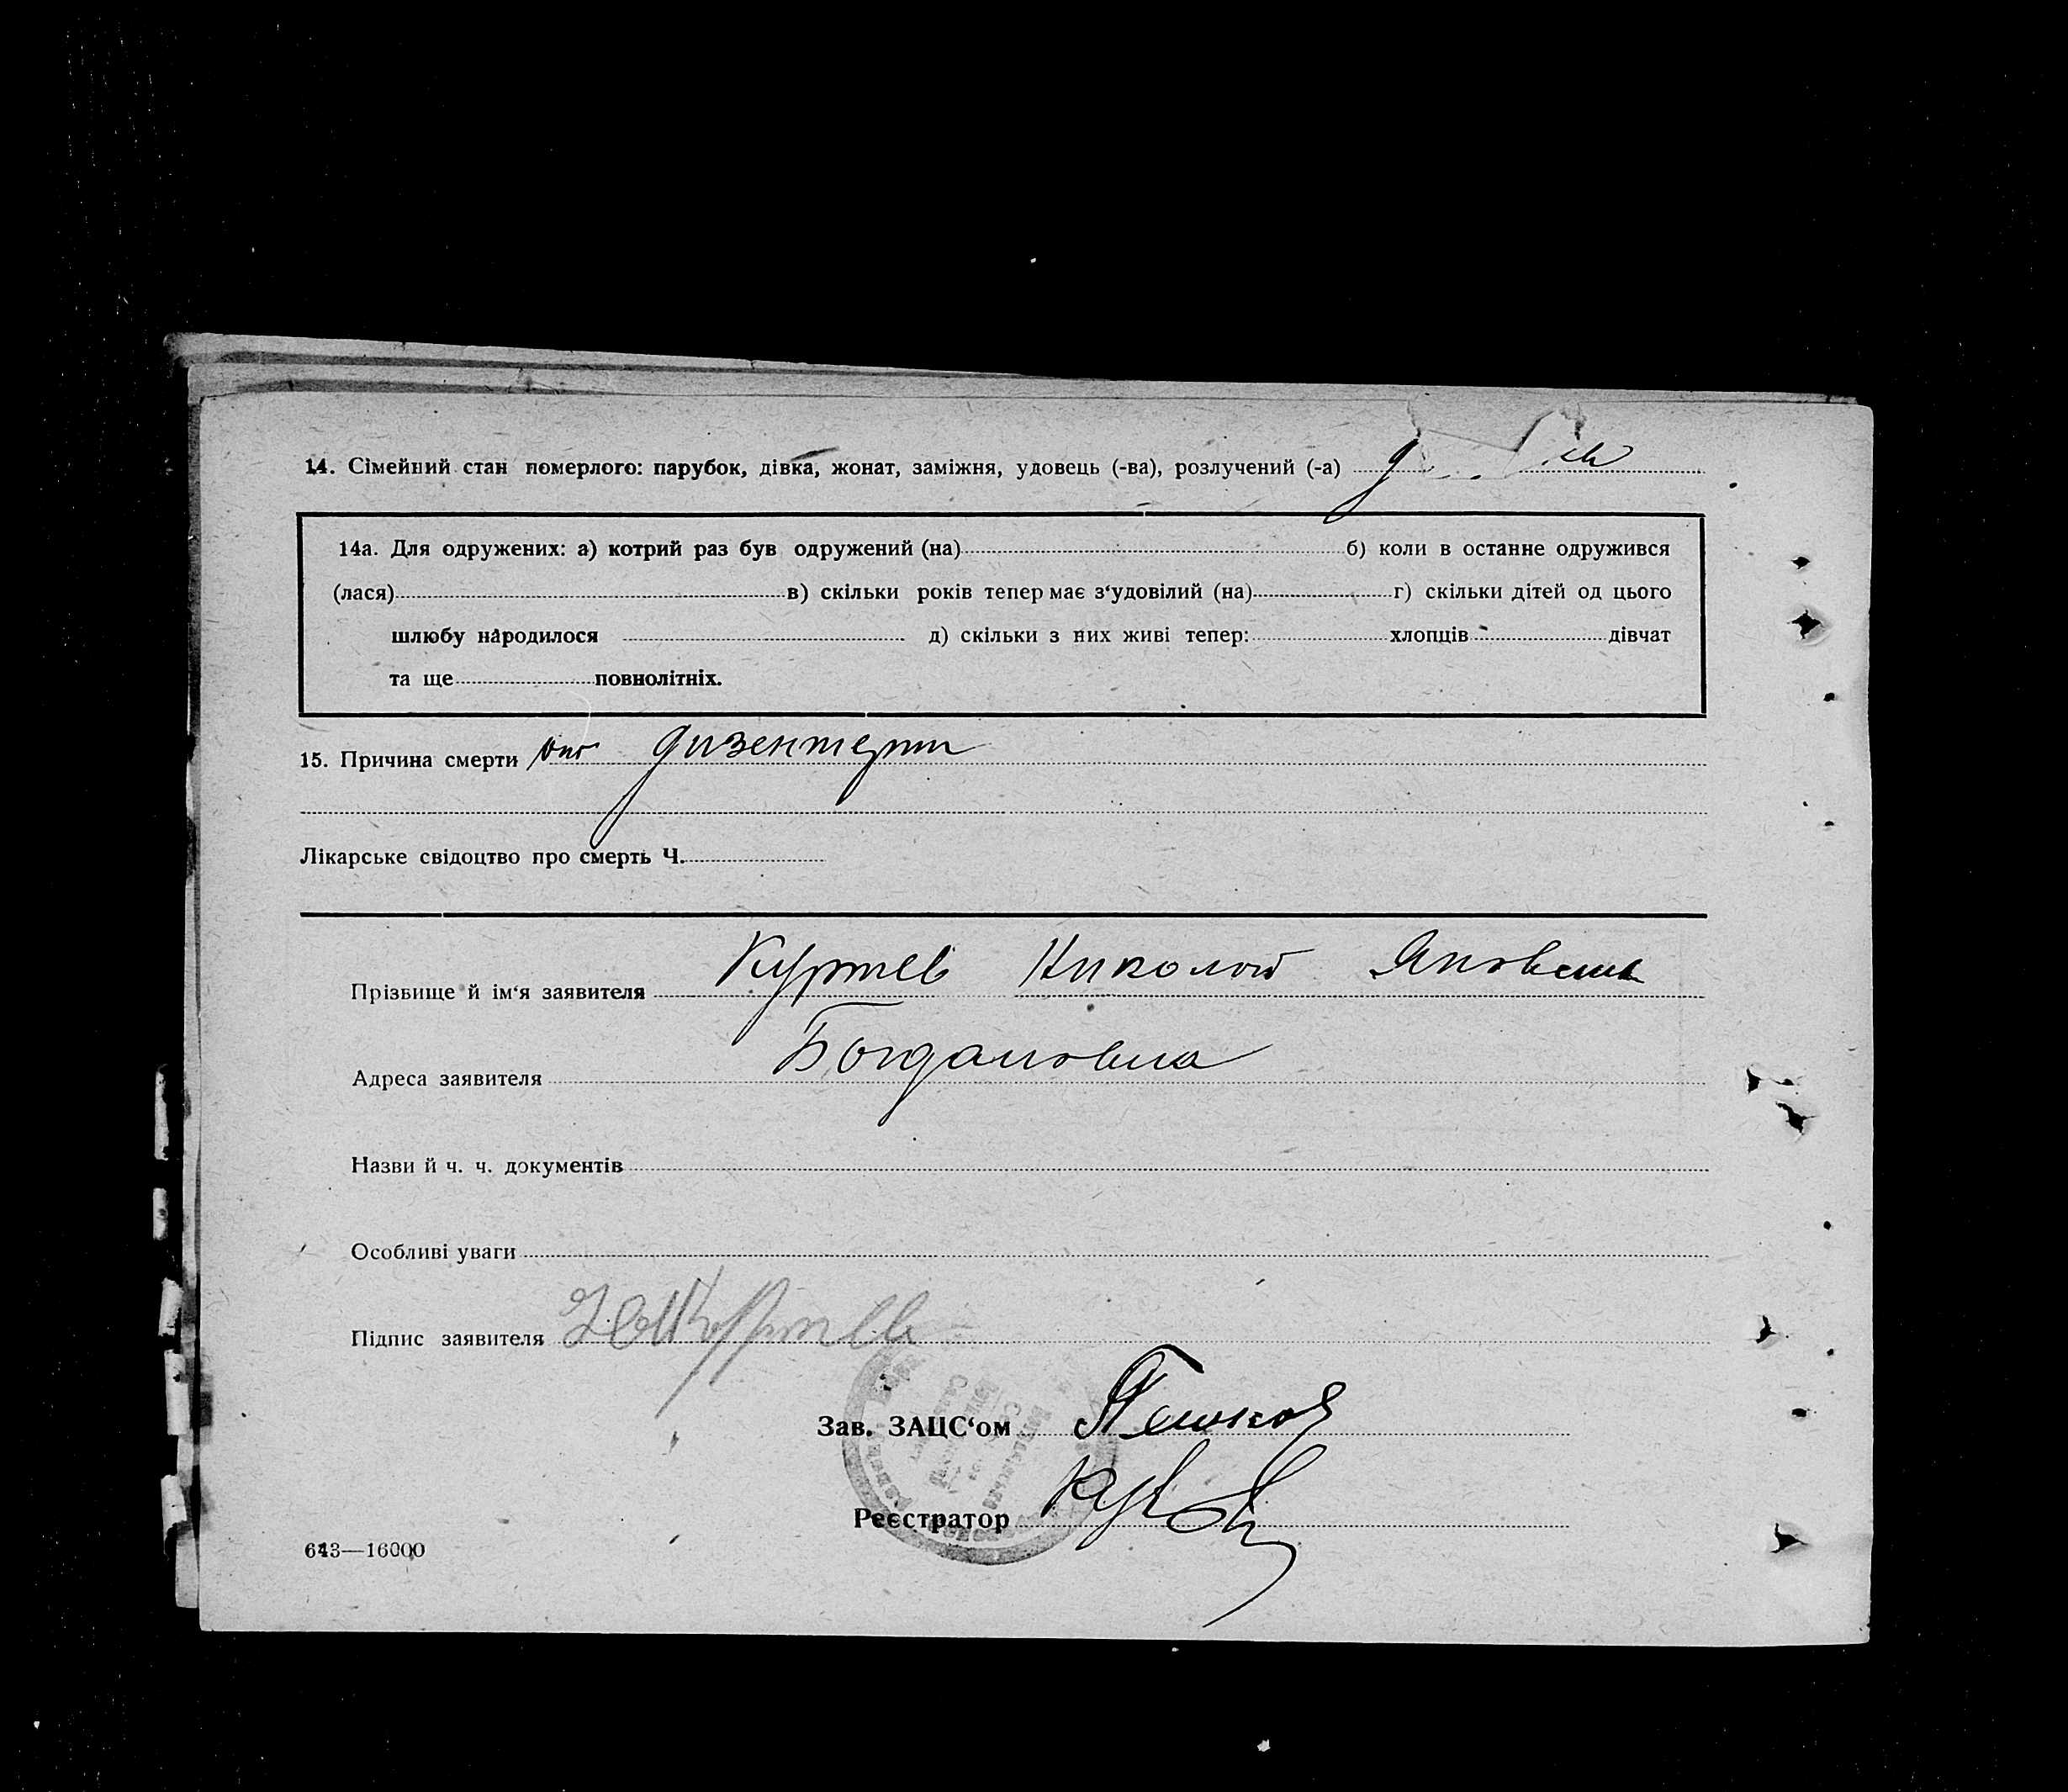 14. Сімейний стан померлого: парубок, дівка, жонат, заміжня, удовець (-ва), розлучений (-а)
14а. Для одружених: а) котрий раз був одружений (на) б) коли в останне одружився
(лася) в) скільки років тепер має з‘удовілий (на) г) скільки дітей од цього
шлюбу народилося д) скільки з них живі тепер: хлопців дівчат
та ще повнолітніх.
15. Причина смерти от дизентерии
Лікарське свідоцтво про смерть Ч.
Прізвище й ім‘я заявителя Куртев Николай Яковлевич
Адреса заявителя Богдановка
Назви й ч. ч. документів
Особливі уваги
Підпис заявителя
Зав. ЗАЦС‘ом
Реєстратор
643—16000